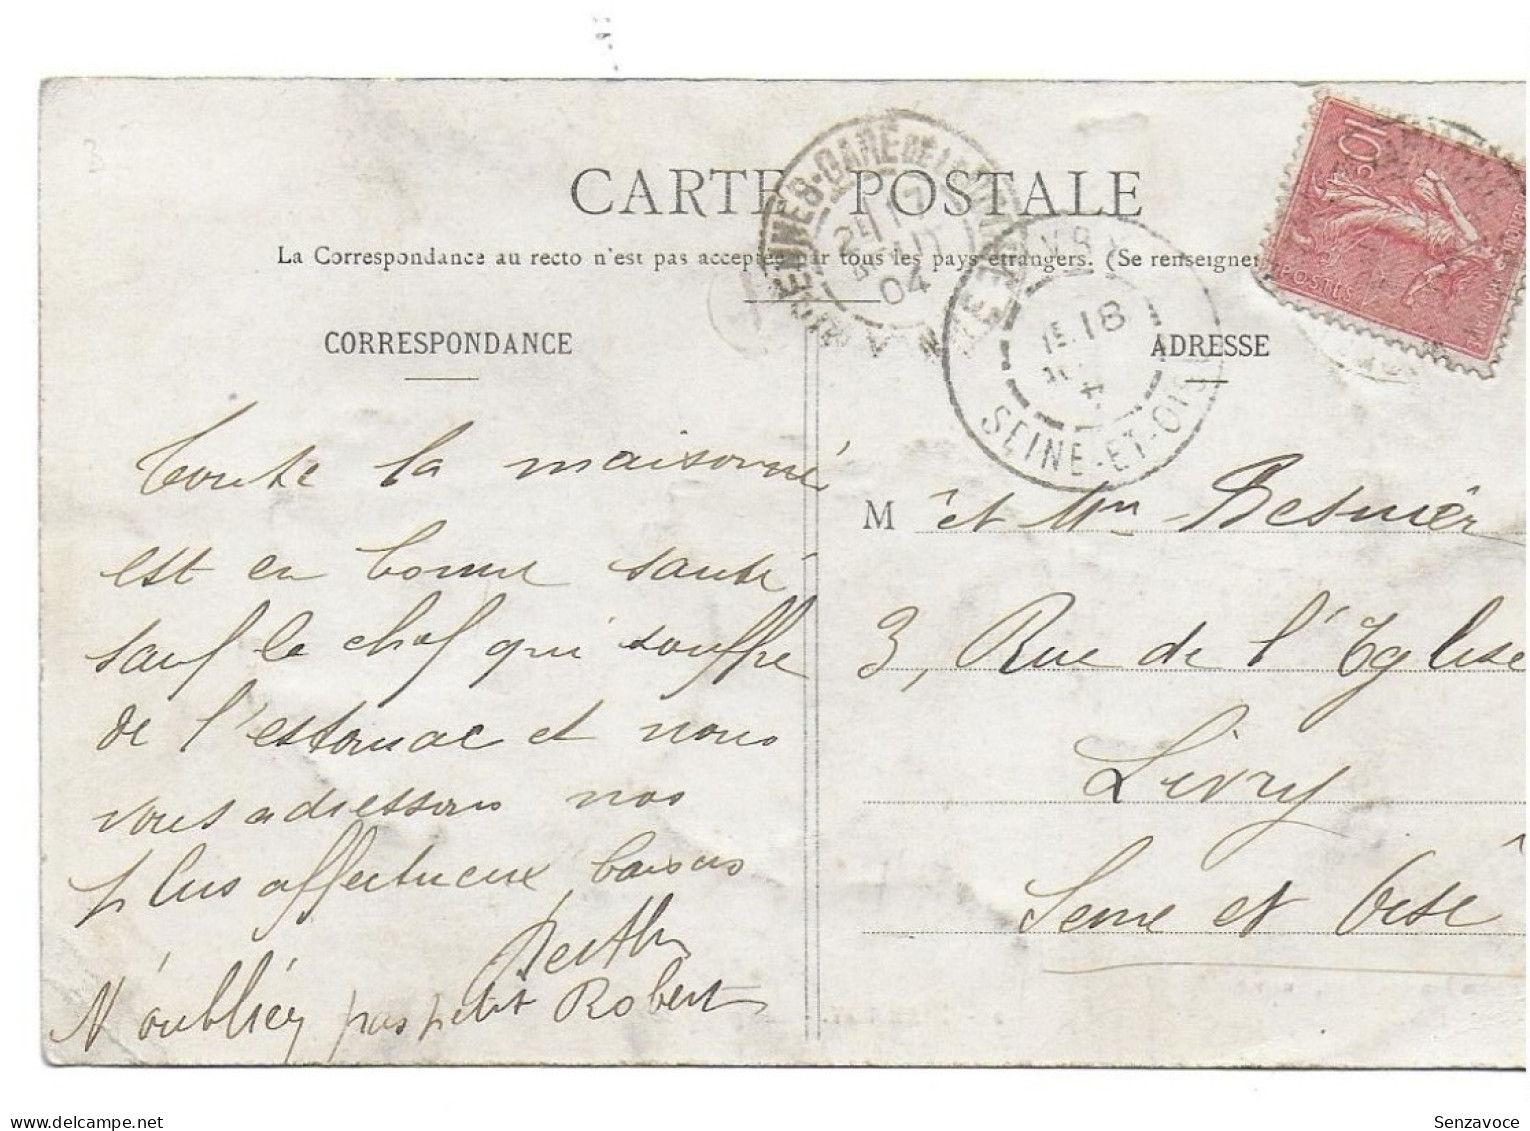 CARTE POSTALE
La Correspondance au recto n'est pas acceptée par tous les pays étrangers. (Se renseigner
CORRESPONDANCE
Toute la maisonné
est en bonne santé
sauf le chef qui souffre
de l'estomac et nous
vous adressons nos
plus affectueux baisers
Berthe
N'oubliez pas petit Robert
ADRESSE
M et Mme Besnier
3, Rue de l'Eglise
Livry
Seine et Oise
17
AOUT
04
LIVRY
18
SEINE-ET-OISE
10c
POSTES
Senzavoce